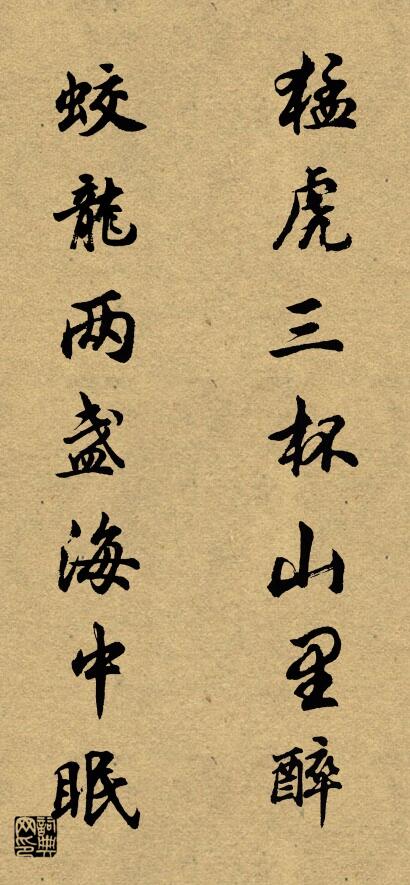 猛虎三杯山里醉
蛟龍两盏海中眠
詞典网印